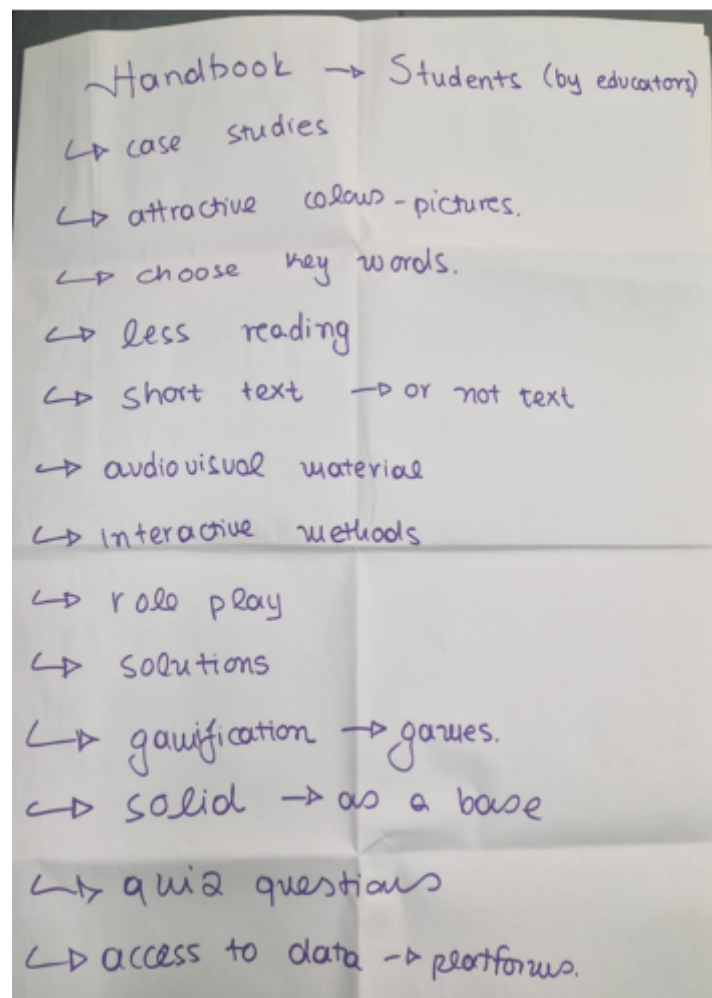 Handbook → Students (by educators)
↳ case studies
↳ attractive colous - pictures.
↳ choose key words.
↳ less reading
↳ short text → or not text
↳ audiovisual material
↳ interactive methods
↳ role play
↳ solutions
↳ gamification → games.
↳ solid → as a base
↳ quiz questions
↳ access to data → platforms.